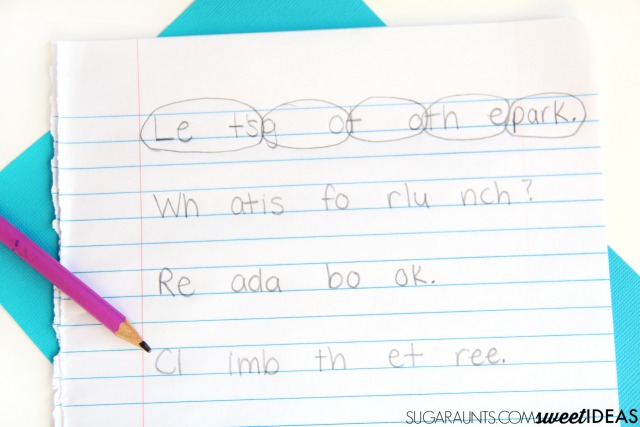 Le t'sg ot oth epark.
Wh atis fo rlu nch?
Re ada bo ok.
Cl imb th et ree.
SUGARAUNTS.COM sweetIDEAS